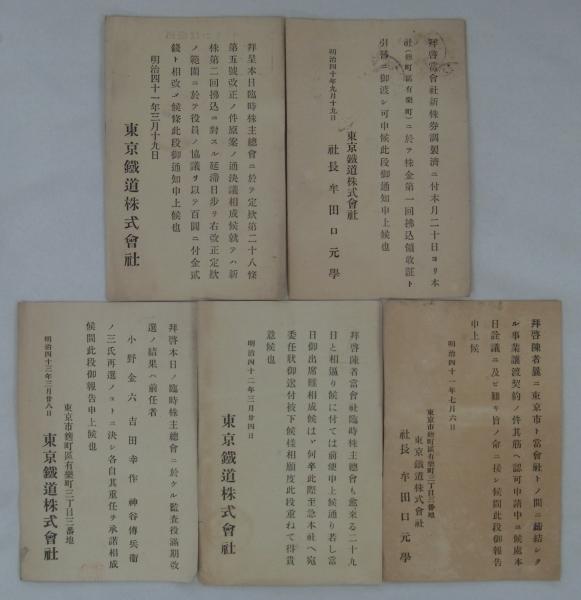 拜啓當會社新株劵調製濟ニ付本月二十日ヨリ本
社(麴町區有樂町)ニ於テ株金第一回拂込領收証ト
引替ニ御渡シ可申候此段御通知申上候也
明治四十年九月十九日
東京鐵道株式會社
社長 牟田口元學
拜呈本日臨時株主總會ニ於テ定欵第二十八條
第五號改正ノ件原案ノ通決議相成候就テハ新
株第二回拂込ニ對スル延滯日步ヲ右改正定欵
ノ範圍ニ於テ役員ノ協議ヲ以テ百圓ニ付金貳
錢ト相改メ候條此段御通知申上候也
明治四十一年三月十九日
東京鐵道株式會社
拜啓陳者曩ニ東京市ト當會社トノ間ニ締結シタ
ル事業讓渡契約ノ件其筋ヘ認可申請中ユ候處本
日詮議ニ及ビ難キ旨ノ命ニ接シ候間此段御報告
申上候
明治四十一年七月六日
東京市麴町區有樂町三丁目三番地
東京鐵道株式會社
社長 牟田口元學
拜啓陳者當會社臨時株主總會も愈來る二十九
日と相逼り候に付ては前便申上候通り若し當
日御出席難相成候はゞ何卒此際至急本社へ宛
委任狀御送付被下候樣相願度此段重ねて得貴
意候也
明治四十二年三月廿四日
東京鐵道株式會社
拜啓本日ノ臨時株主總會ニ於ケル監査役滿期改
選ノ結果ハ前任者
小野金六 吉田幸作 神谷傳兵衞
ノ三氏再選ノコトニ決シ各自其重任ヲ承諾相成
候間此段御報告申上候也
明治四十三年三月廿八日
東京市麴町區有樂町三丁目三番地
東京鐵道株式會社